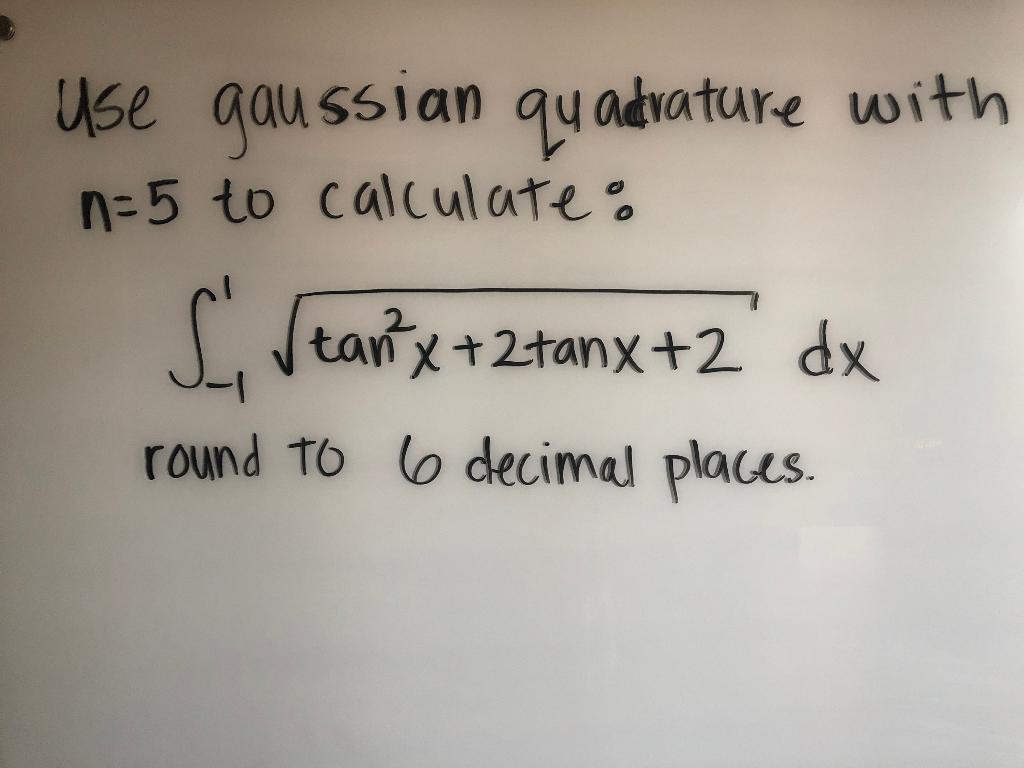 Use gaussian quadrature with
n=5 to calculate:
∫₋₁¹ √(tan²x+2tanx+2) dx
round to 6 decimal places.